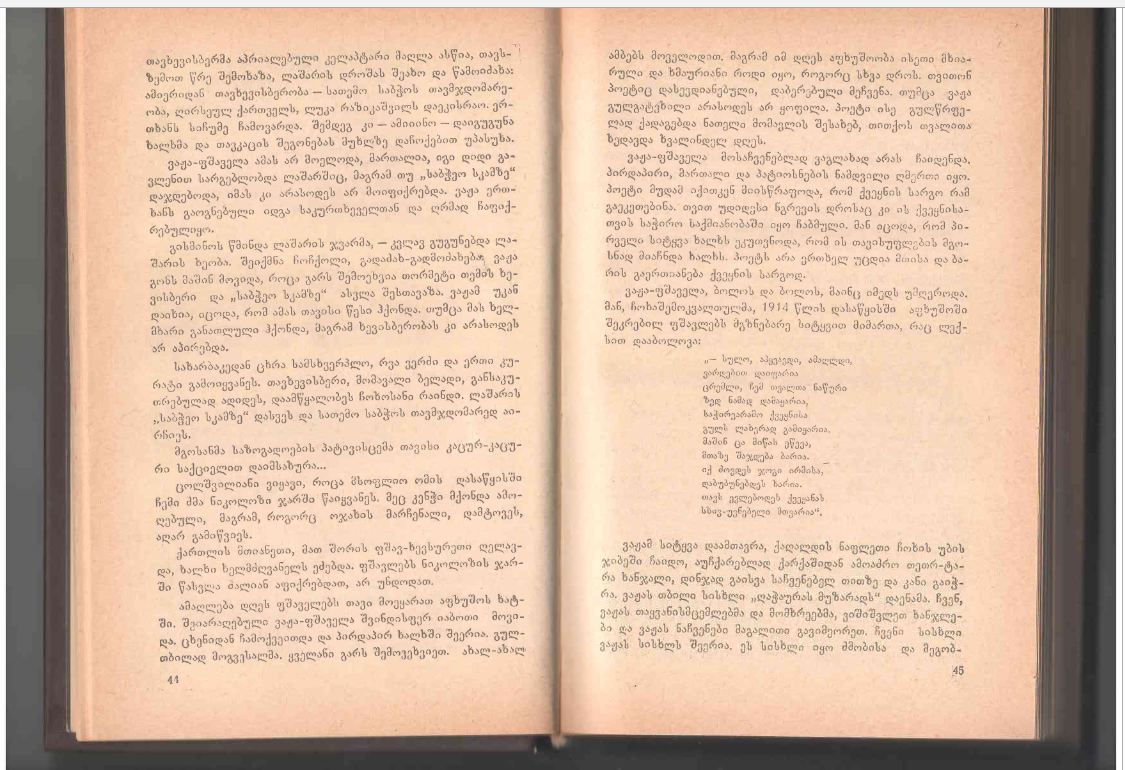 თავხევისბერმა აპრიალებული კელაპტარი მაღლა ასწია, თავს-
ზემოთ წრე შემოხაზა, ლაშარის დროშას შეახო და წამოიძახა:
ამიერიდან თავხევისბერობა — სათემო საბჭოს თავმჯდომარე-
ობა, ღირსეულ ქართველს, ლუკა რაზიკაშვილს დაეკისრაო. ერ-
თხანს სიჩუმე ჩამოვარდა. შემდეგ კი — ამიინო — დაიგუგუნა
ხალხმა და თავკაცის შეგონებას მუხლზე დაჩოქებით უპასუხა.
ვაჟა-ფშაველა ამას არ მოელოდა, მართალია, იგი დიდი გა-
ვლენით სარგებლობდა ლაშარშიც, მაგრამ თუ „საბჭეო სკამზე“
დაჯდებოდა, იმას კი არასოდეს არ მოიფიქრებდა. ვაჟა ერთ-
ხანს გაოგნებული იდგა საკურთხეველთან და ღრმად ჩაფიქ-
რებულიყო.
გისმინოს წმინდა ლაშარის ჯვარმა, — კვლავ გუგუნებდა ლა-
შარის ხეობა. შეიქმნა ჩოჩქოლი, გადაძახ-გადმოძახება. ვაჟა
გონს მაშინ მოვიდა, როცა გარს შემოეხვია თორმეტი თემის ხე-
ვისბერი და „საბჭეო სკამზე“ ასვლა შესთავაზა. ვაჟამ უკან
დაიხია, იცოდა, რომ ამას თავისი წესი ჰქონდა. თუმცა მას ხელ-
მხარი განათლული ჰქონდა, მაგრამ ხევისბერობას კი არასოდეს
არ აპირებდა.
სახარბაკედან ცხრა სამსხვერპლო, რვა ვერძი და ერთი კუ-
რატი გამოიყვანეს. თავხევისბერი, მომავალი ბელადი, განსაკუ-
თრებულად ადიდეს, დაამწყალობეს ჩოხოსანი რაინდი. ლაშარის
„საბჭეო სკამზე“ დასვეს და სათემო საბჭოს თავმჯდომარედ აი-
რჩიეს.
მგოსანმა საზოგადოების პატივისცემა თავისი კაცურ-კაცუ-
რი საქციელით დაიმსახურა...
ცოლშვილიანი ვიყავი, როცა მსოფლიო ომის დასაწყისში
ჩემი ძმა ნიკოლოზი ჯარში წაიყვანეს. მეც კენჭი მქონდა ამო-
ღებული, მაგრამ, როგორც ოჯახის მარჩენალი, დამტოვეს,
აღარ გამიწვიეს.
ქართლის მთიანეთი, მათ შორის ფშავ-ხევსურეთი ღელავ-
და, ხალხი ხელმძღვანელს ეძებდა. ფშავლებს ნიკოლოზის ჯარ-
ში წასვლა ძალიან აფიქრებდათ, არ უნდოდათ.
ამაღლება დღეს ფშაველებს თავი მოეყარათ აფხუშოს ხატ-
ში. შეიარაღებული ვაჟა-ფშაველა შვინდისფერ იაბოთი მოვი-
და. ცხენიდან ჩამოქვეითდა და პირდაპირ ხალხში შეერია. გულ-
თბილად მოგვესალმა. ყველანი გარს შემოვეხვიეთ. ახალ-ახალ
44
ამბებს მოველოდით. მაგრამ იმ დღეს აფხუშოობა ისეთი მხია-
რული და ხმაურიანი როდი იყო, როგორც სხვა დროს. თვითონ
პოეტიც დასევდიანებული, დაბერებული მეჩვენა. თუმცა ვაჟა
გულგატეხილი არასოდეს არ ყოფილა. პოეტი ისე გულწრფე-
ლად ქადაგებდა ნათელი მომავლის შესახებ, თითქოს თვალითა
ხედავდა ხვალინდელ დღეს.
ვაჟა-ფშაველა მოსაჩვენებლად ვაგლახად არას ჩაიდენდა.
პირდაპირი, მართალი და პატიოსნების ნამდვილი ღმერთი იყო.
პოეტი მუდამ იქითკენ მიისწრაფოდა, რომ ქვეყნის სარგო რამ
გაეკეთებინა. თვით უდიდესი ნგრევის დროსაც კი ის ქვეყნისა-
თვის საჭირო საქმიანობაში იყო ჩაბმული. მან იცოდა, რომ პი-
რველი სიტყვა ხალხს ეკუთვნოდა, რომ ის თავისუფლების მგო-
სნად მიაჩნდა ხალხს. პოეტს არა ერთხელ უცდია მთისა და ბა-
რის გაერთიანება ქვეყნის სარგოდ.
ვაჟა-ფშაველა, ბოლოს და ბოლოს, მაინც იმედს უმღეროდა.
მან, ჩოხაშემოკვალთულმა, 1914 წლის დასაწყისში აფხუშოში
შეკრებილ ფშავლებს მგზნებარე სიტყვით მიმართა, რაც ლექ-
სით დააბოლოვა:
„— სულო, აჰყვავდი, ამაღლდი,
ვარდებით დაიფარია
ცრემლი, ჩემ თვალთა ნაწური
ზედ ნამად დამაყარია,
საჭირვარამო ქვეყნისა
გულს ლახვრად გამიყარია.
მაშინ ცა მიწას ეწევა,
მთაზე შაჯდება ბარია.
იქ ძოვდეს ჯოგი ირმისა,
დაბუბუნებდეს ხარია.
თავს ევლებოდეს ქვეყანას
სხივ-უვნებელი მთვარია“.
ვაჟამ სიტყვა დაამთავრა, ქაღალდის ნაფლეთი ჩოხის უბის
ჯიბეში ჩაიდო, აუჩქარებლად ქარქაშიდან ამოაძრო თეთრ-ტა-
რა ხანჯალი, დინჯად გაისვა საჩვენებელ თითზე და კანი გაიჭ-
რა. ვაჟას თბილი სისხლი „ღაჭაურას მუზარადს“ დაენამა. ჩვენ,
ვაჟას თაყვანისმცემლებმა და მომხრეებმა, ვიშიშვლეთ ხანჯლე-
ბი და ვაჟას ნაჩვენები მაგალითი გავიმეორეთ. ჩვენი სისხლი
ვაჟას სისხლს შეერია. ეს სისხლი იყო ძმობისა და მეგობ-
45